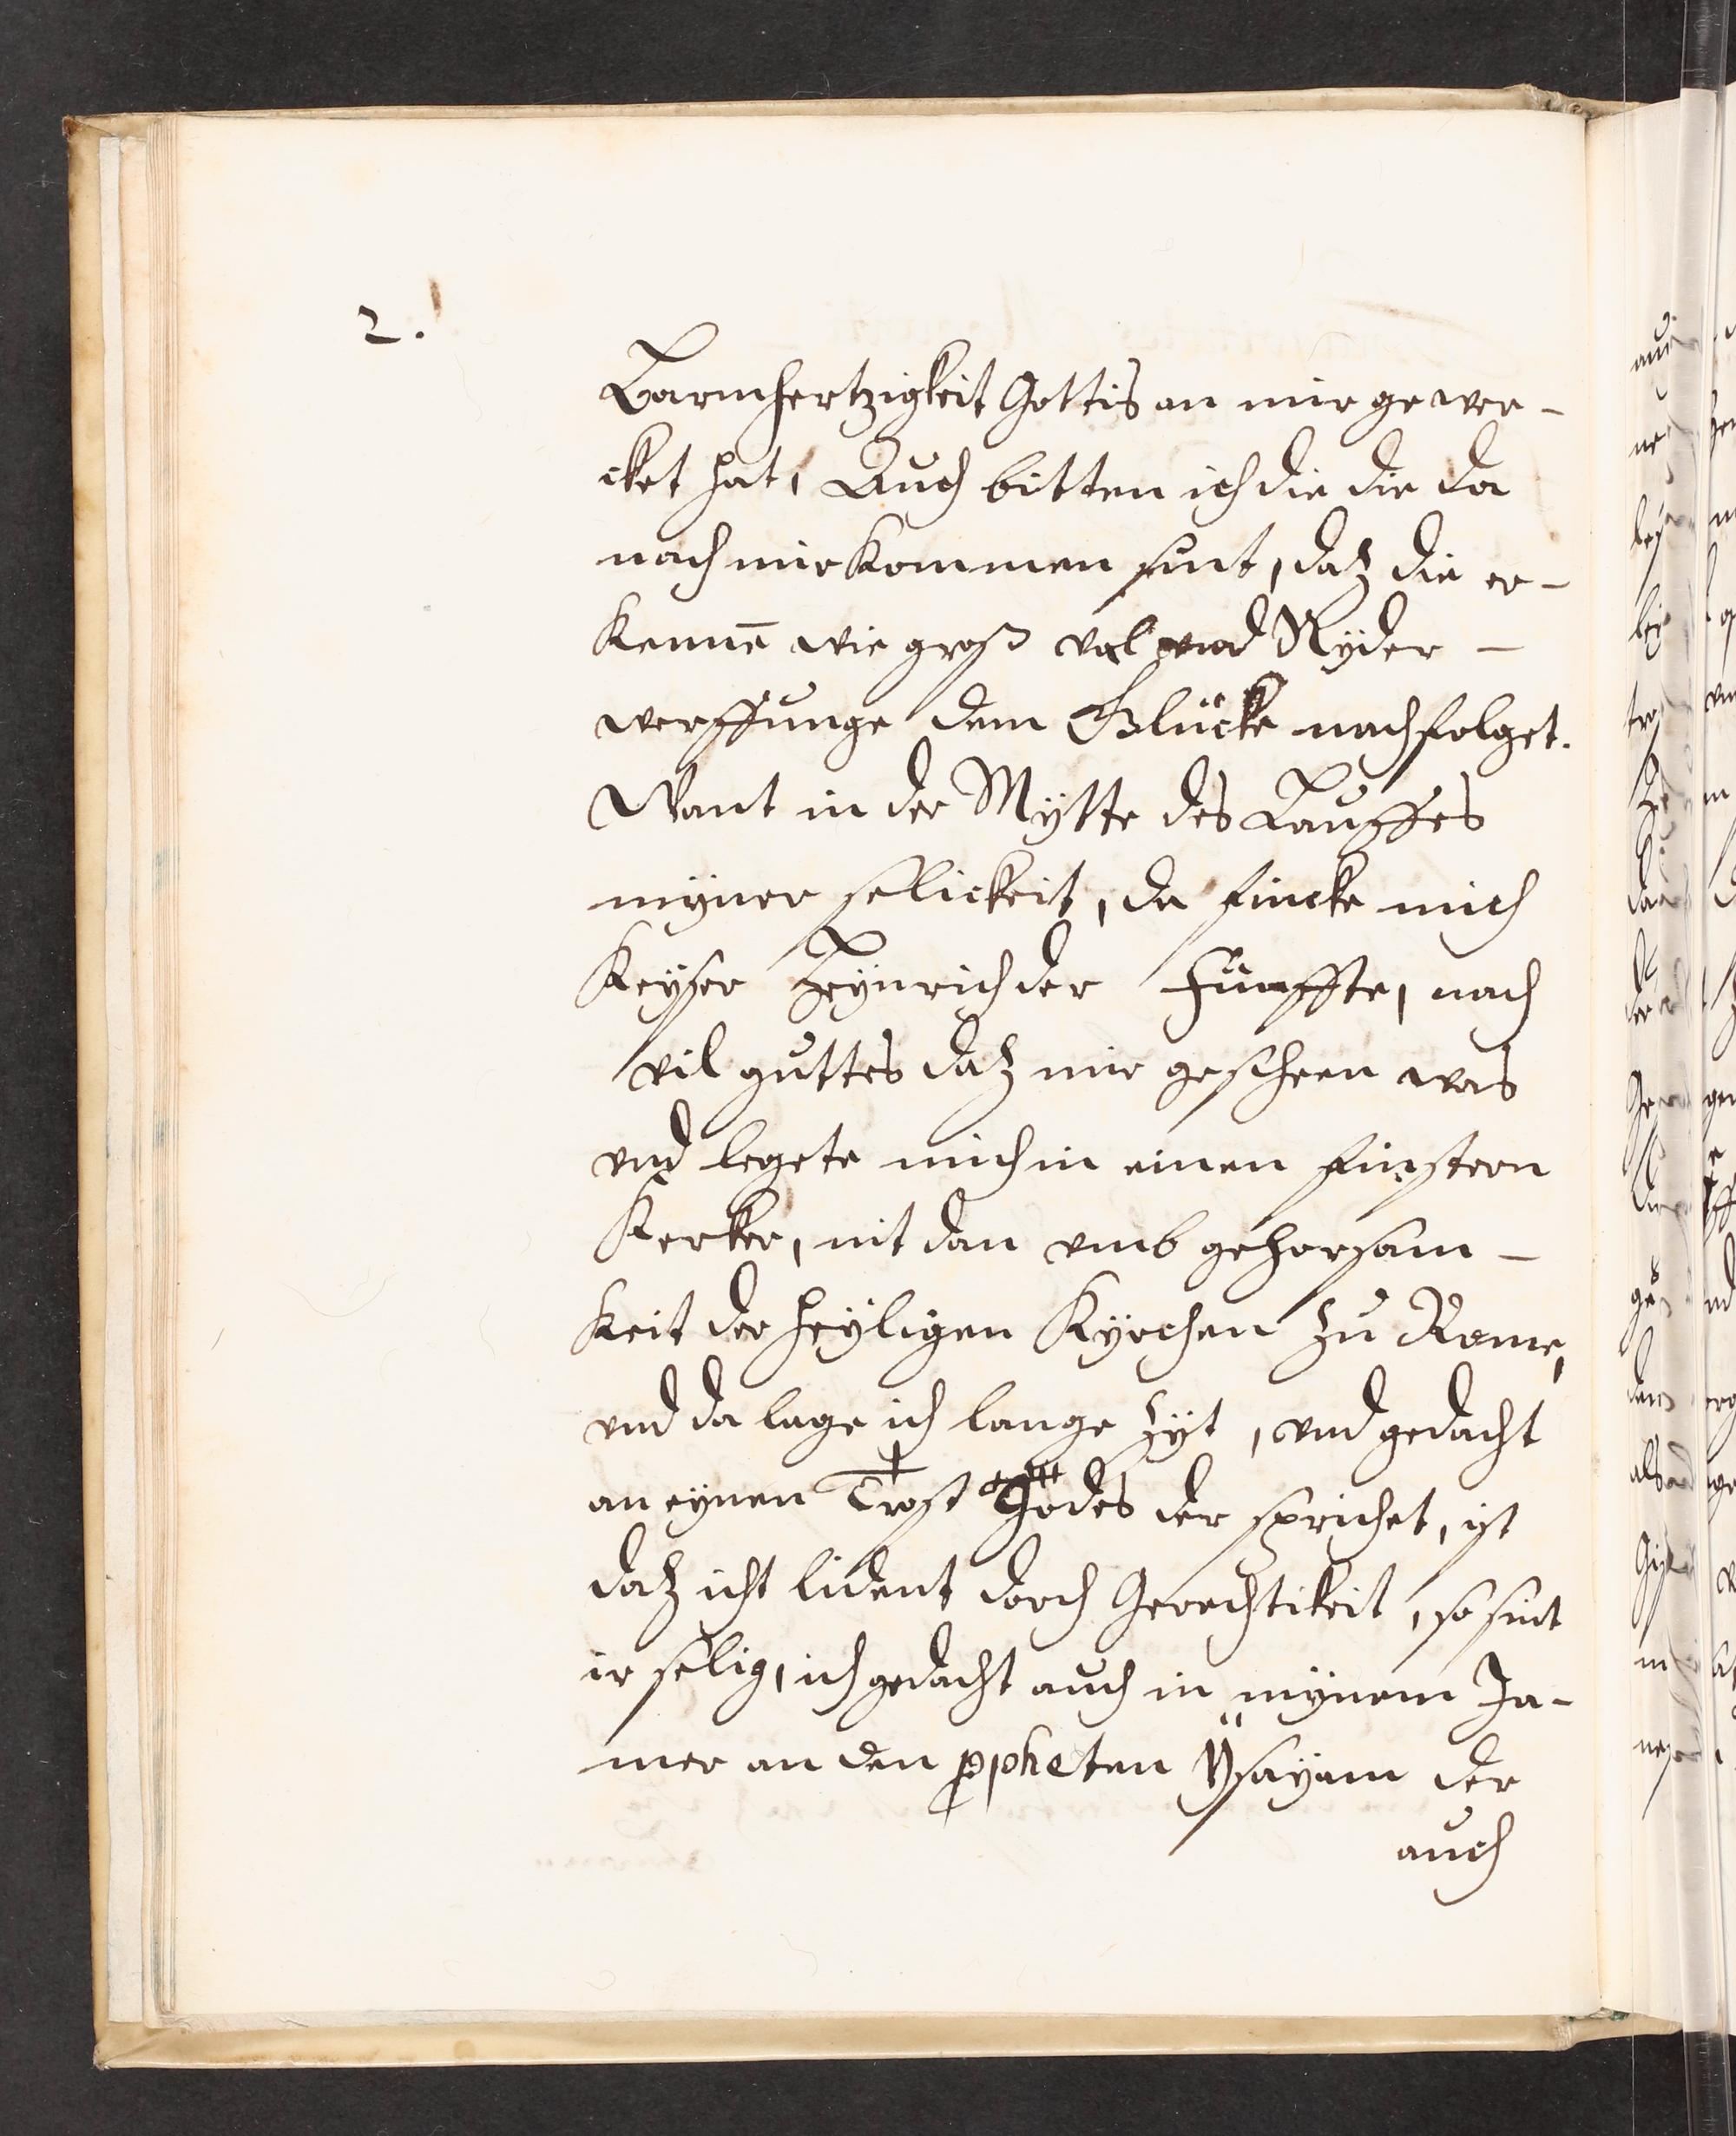 2.
Barmhertzigkeit Gottis an mir gewer-
cket hat, Auch bitten ich die die da
nach mir kommen sint, daz die er-
kenne̅ wie groß val vnd Nyder-
werffunge dem Glücke nachfolget.
Want in der Mytte des Lauffes
myner selickeit, da fincke mich
Keyser Heynrich der Fünffte, nach
vil guttes daz mir gescheen was
vnd legete mich in einen finstern
Kerker, nit dan vmb gehorsam-
keit der heyligen Kyrchen zu Rome,
vnd da lage ich lange zyt, vnd gedacht
an eynen Trost Godes der sprichet, ist
daz icht lident dorch Gerechtikeit, so sint
ir selig, ich gedacht auch in mynem Ja-
mer an den ꝓpheten Ÿsayam der
auch